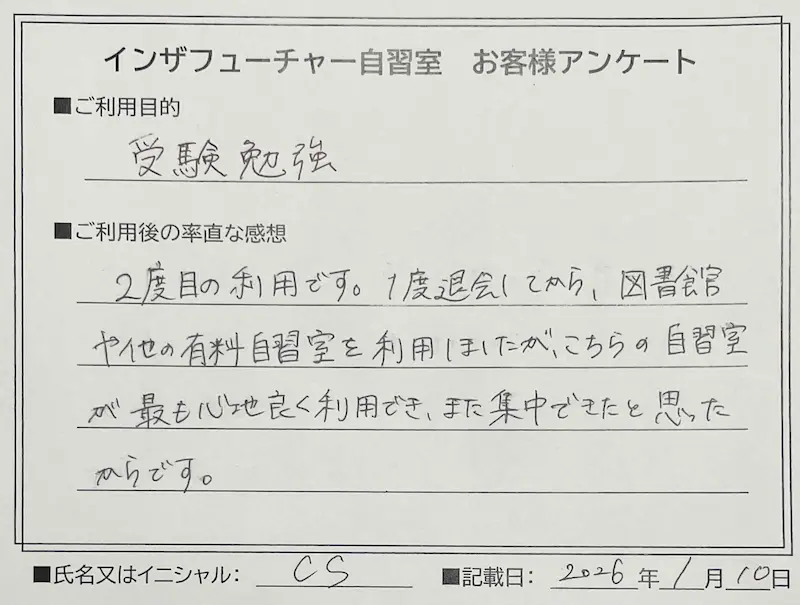 インザフューチャー自習室 お客様アンケート
■ご利用目的
受験勉強
■ご利用後の率直な感想
2度目の利用です。1度退会してから、図書館
や他の有料自習室を利用しましたが、こちらの自習室
が最も心地良く利用でき、また集中できたと思った
からです。
■氏名又はイニシャル: CS ■記載日: 2026年1月10日